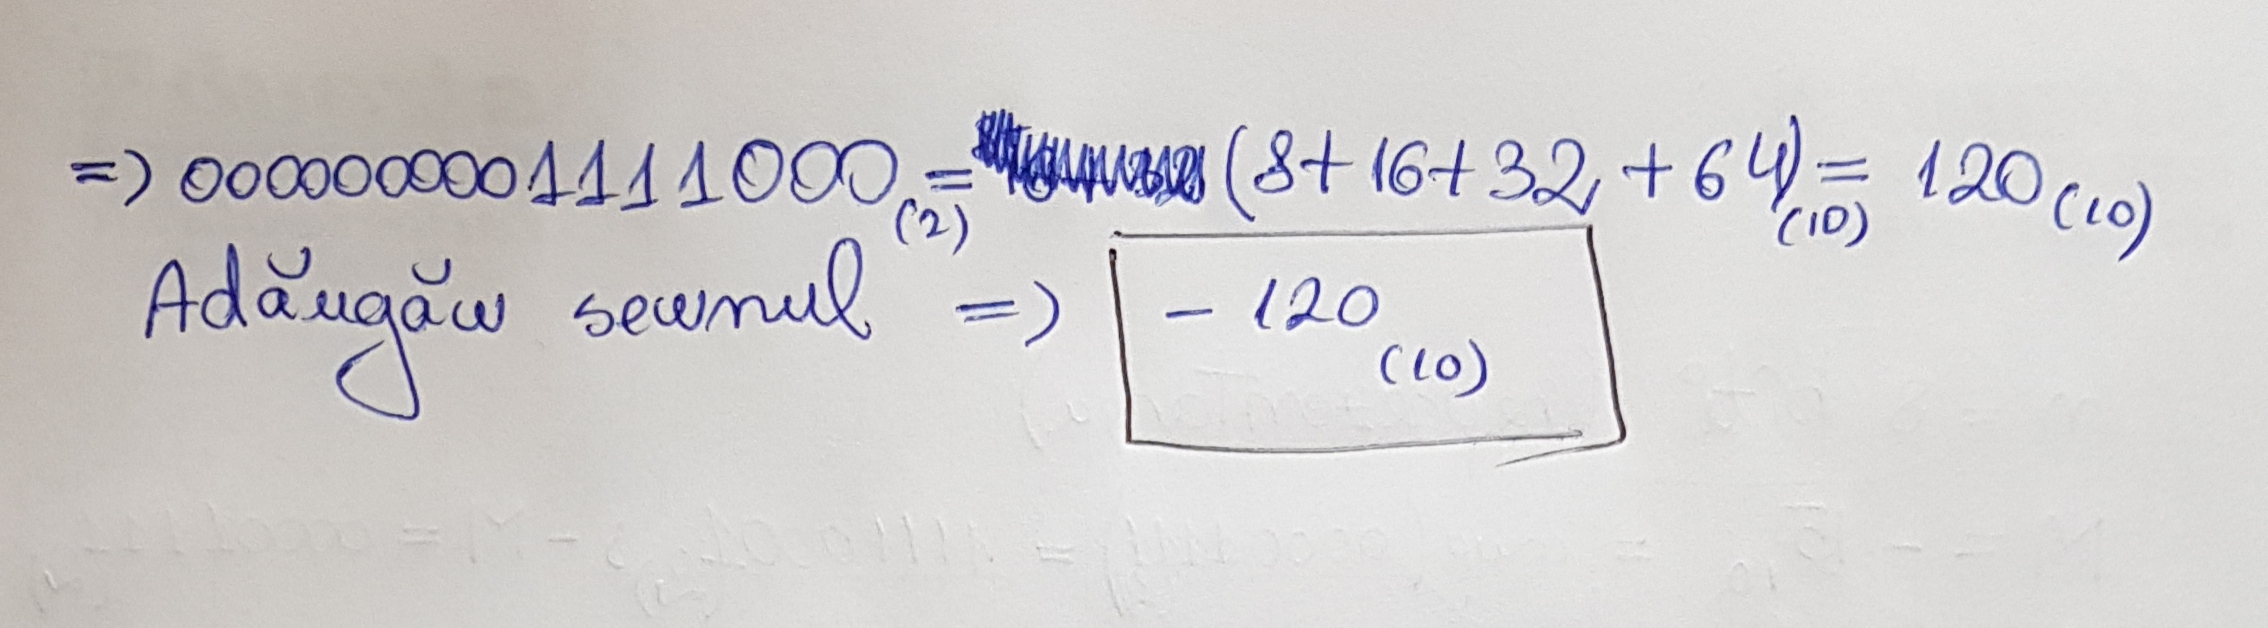 => 0000000001111000(2) = (8+16+32+64)(10) = 120(10)
Adăugăm semnul => -120(10)